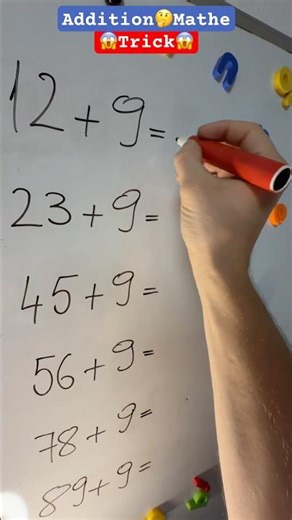 Addition🤔Mathe
😱Trick😱
12+9=
23+9=
45+9=
56+9=
78+9=
89+9=